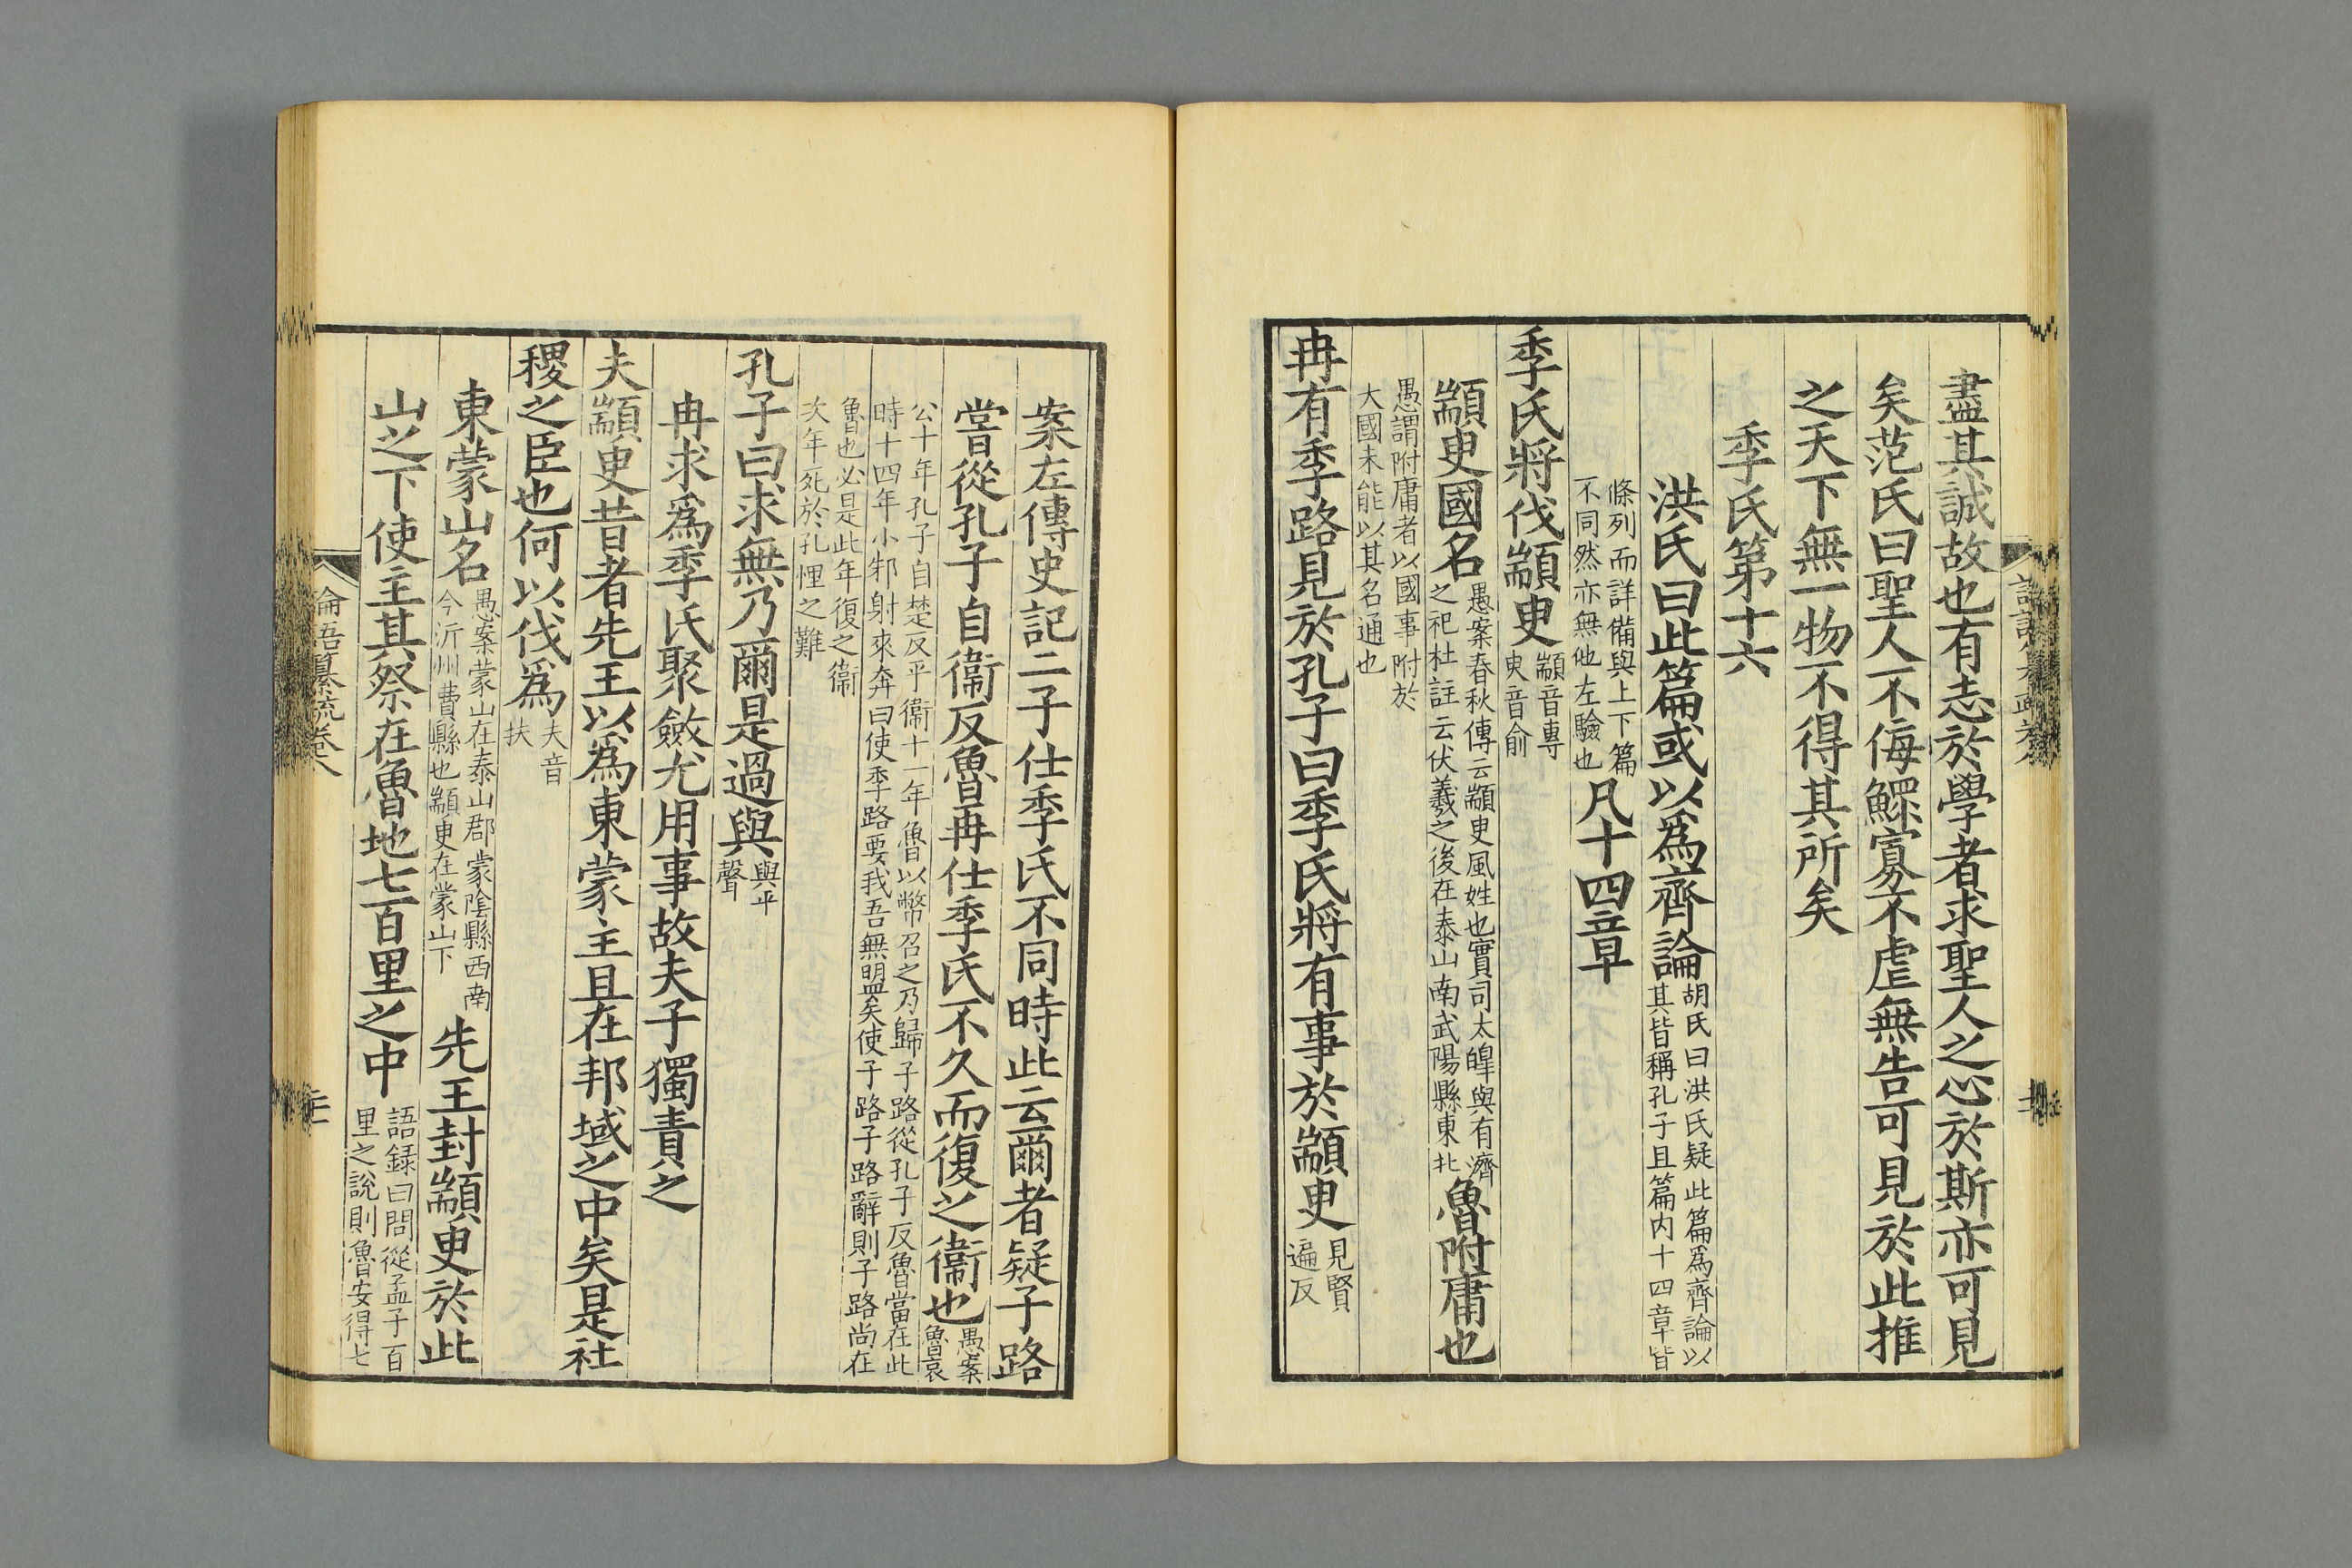 盡其誠故也有志於學者求聖人之心於斯亦可見
矣范氏曰聖人不侮鰥寡不虐無告可見於此推
之天下無一物不得其所矣
季氏第十六
洪氏曰此篇或以爲齊論胡氏曰洪氏疑此篇爲齊論以其皆稱孔子且篇内十四章皆
條列而詳備與上下篇不同然亦無他左驗也凡十四章
季氏將伐顓臾顓音專臾音俞
顓臾國名愚案春秋傳云顓臾風姓也實司太皥與有濟之祀杜註云伏羲之後在泰山南武陽縣東北魯附庸也
愚謂附庸者以國事附於大國未能以其名通也
冉有季路見於孔子曰季氏將有事於顓臾見賢遍反
案左傳史記二子仕季氏不同時此云爾者疑子路
嘗從孔子自衞反魯再仕季氏不久而復之衞也愚案魯哀
公十年孔子自楚反乎衞十一年魯以幣召之乃歸子路從孔子反魯當在此時十四年小邾射來奔曰使季路要我吾無盟矣使子路子路辭則子路尚在
魯也必是此年復之衞次年死於孔悝之難
孔子曰求無乃爾是過與與平聲
冉求爲季氏聚斂尤用事故夫子獨責之
夫顓臾昔者先王以爲東蒙主且在邦域之中矣是社
稷之臣也何以伐爲夫音扶
東蒙山名愚案蒙山在泰山郡蒙陰縣西南今沂州費縣也顓臾在蒙山下先王封顓臾於此
山之下使主其祭在魯地七百里之中語録曰問從孟子百里之說則魯安得七
論語纂疏卷八